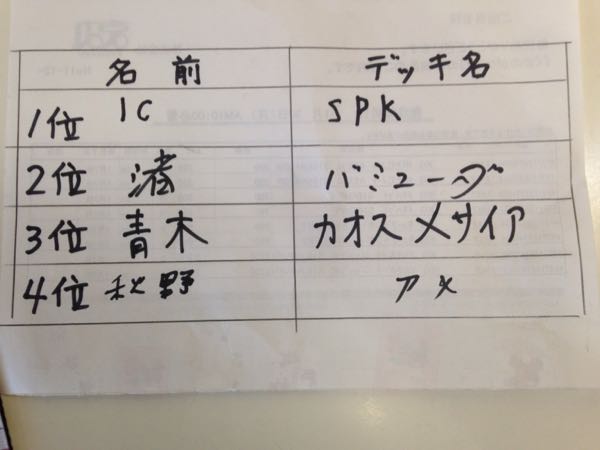 名前 デッキ名
1位 IC SPK
2位 渚 バミューダ
3位 青木 カオスメサイア
4位 秋野 アメ